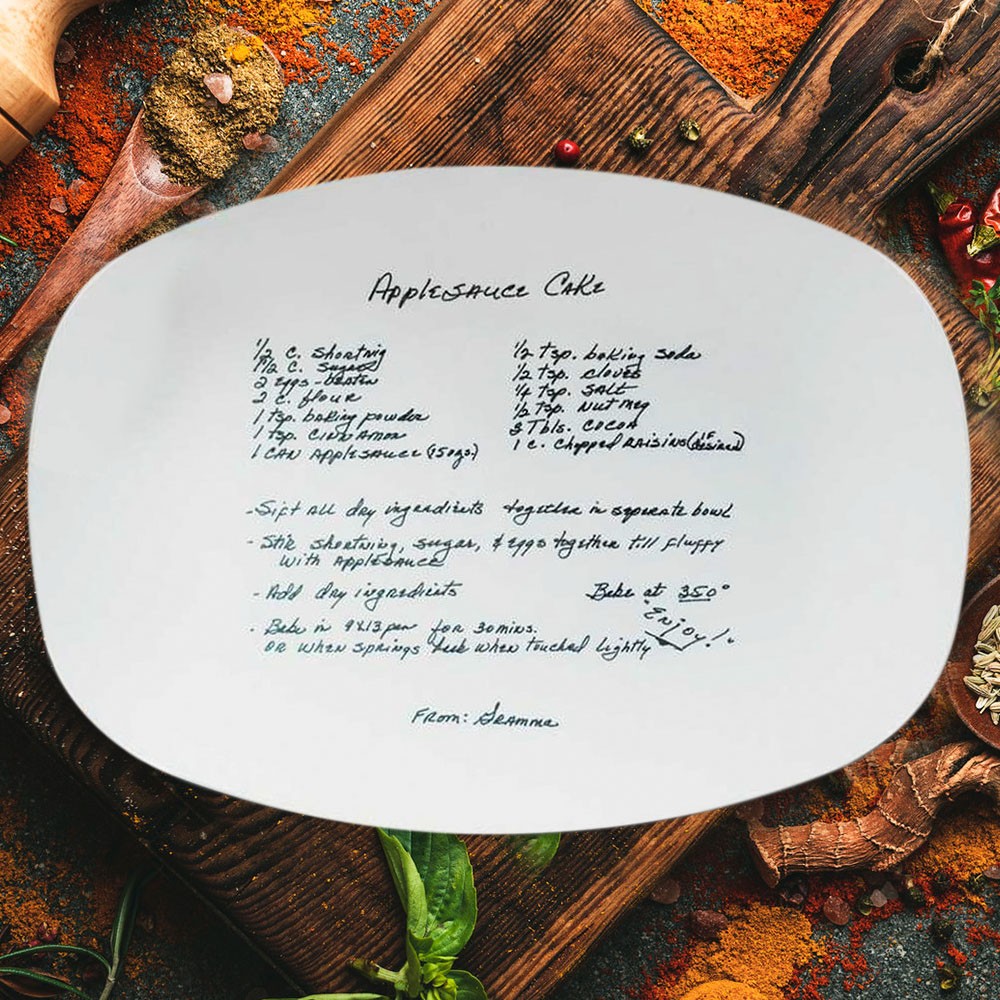 Applesauce Cake
1/2 c. shortnig
1 1/2 c. sugar
2 eggs - beaten
2 c. flour
1 tsp. baking powder
1 tsp. cinnamon
1 can applesauce (15 ozs.)
1/2 tsp. baking soda
1/2 tsp. cloves
1/4 tsp. salt
1/2 tsp. nutmeg
3 Tbls. cocoa
1 c. chopped raisins (if desired)
- Sift all dry ingredients together in seperate bowl
- Stir shortning, sugar, & eggs together till fluffy
with applesauce
- Add dry ingredients
Bake at 350°
"Enjoy!"
- Bake in 9x13 pan for 30 mins.
or when springs back when touched lightly
From: Gramma